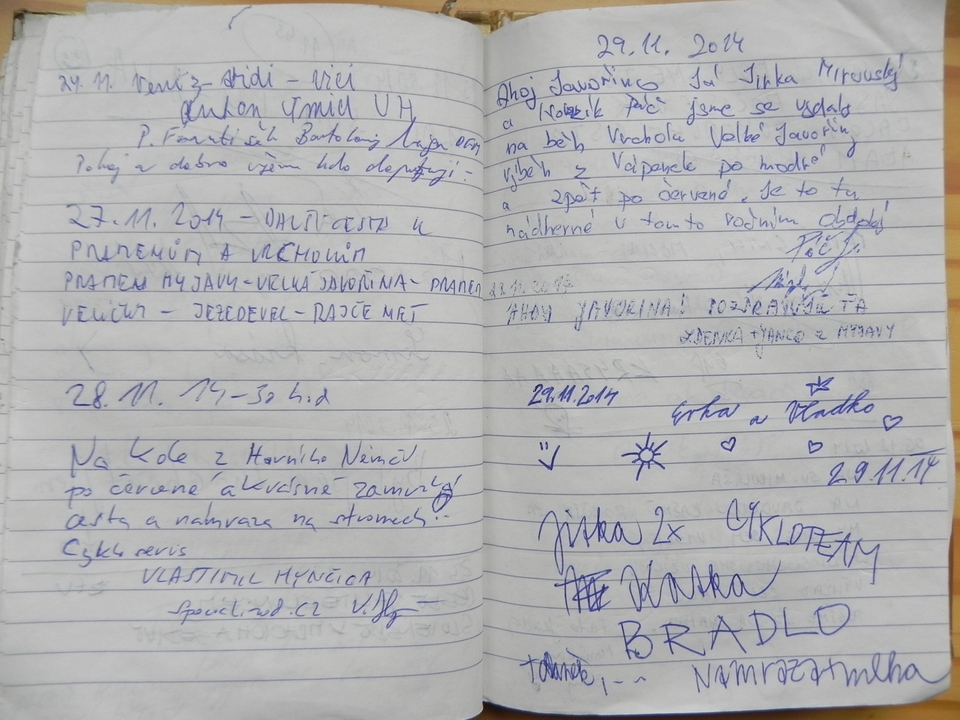 24.11. Veni - vidi - vici
Anton Šmid UH
P. František Bartoloměj
Pokoj a dobro všem kdo
27.11.2014 - DALŠÍ CESTA K
PRAMENŮM A VRCHOLŮM
PRAMEN MYJAVY - VELKÁ JAVOŘINA - PRAMEN
VELIČKY -
28.11. 14 - 30 h.d
Na kole z Horního Němčí
po červené a krásně zamrzlá
cesta a námraza na stromech!
Cyklo servis
VLASTIMIL HYNČICA
29.11. 2014
Ahoj Javořinco Já Jirka Mirovský
a Páč jsme se vydaly
na běh Vrchola Velké Javořiny
výběh z Vápenek po modré
a zpět po červené. Je to tu
nádherné v tomto ročním období
Páč J.
AHOJ JAVORINA! POZDRAVUJE ŤA
ZDENKA + JANCO Z MYJAVY
29.11.2014
Erka a Vladko
29.11.14
Jitka 2x CYKLOTEAM
Katka
BRADLO
námraza + mlha